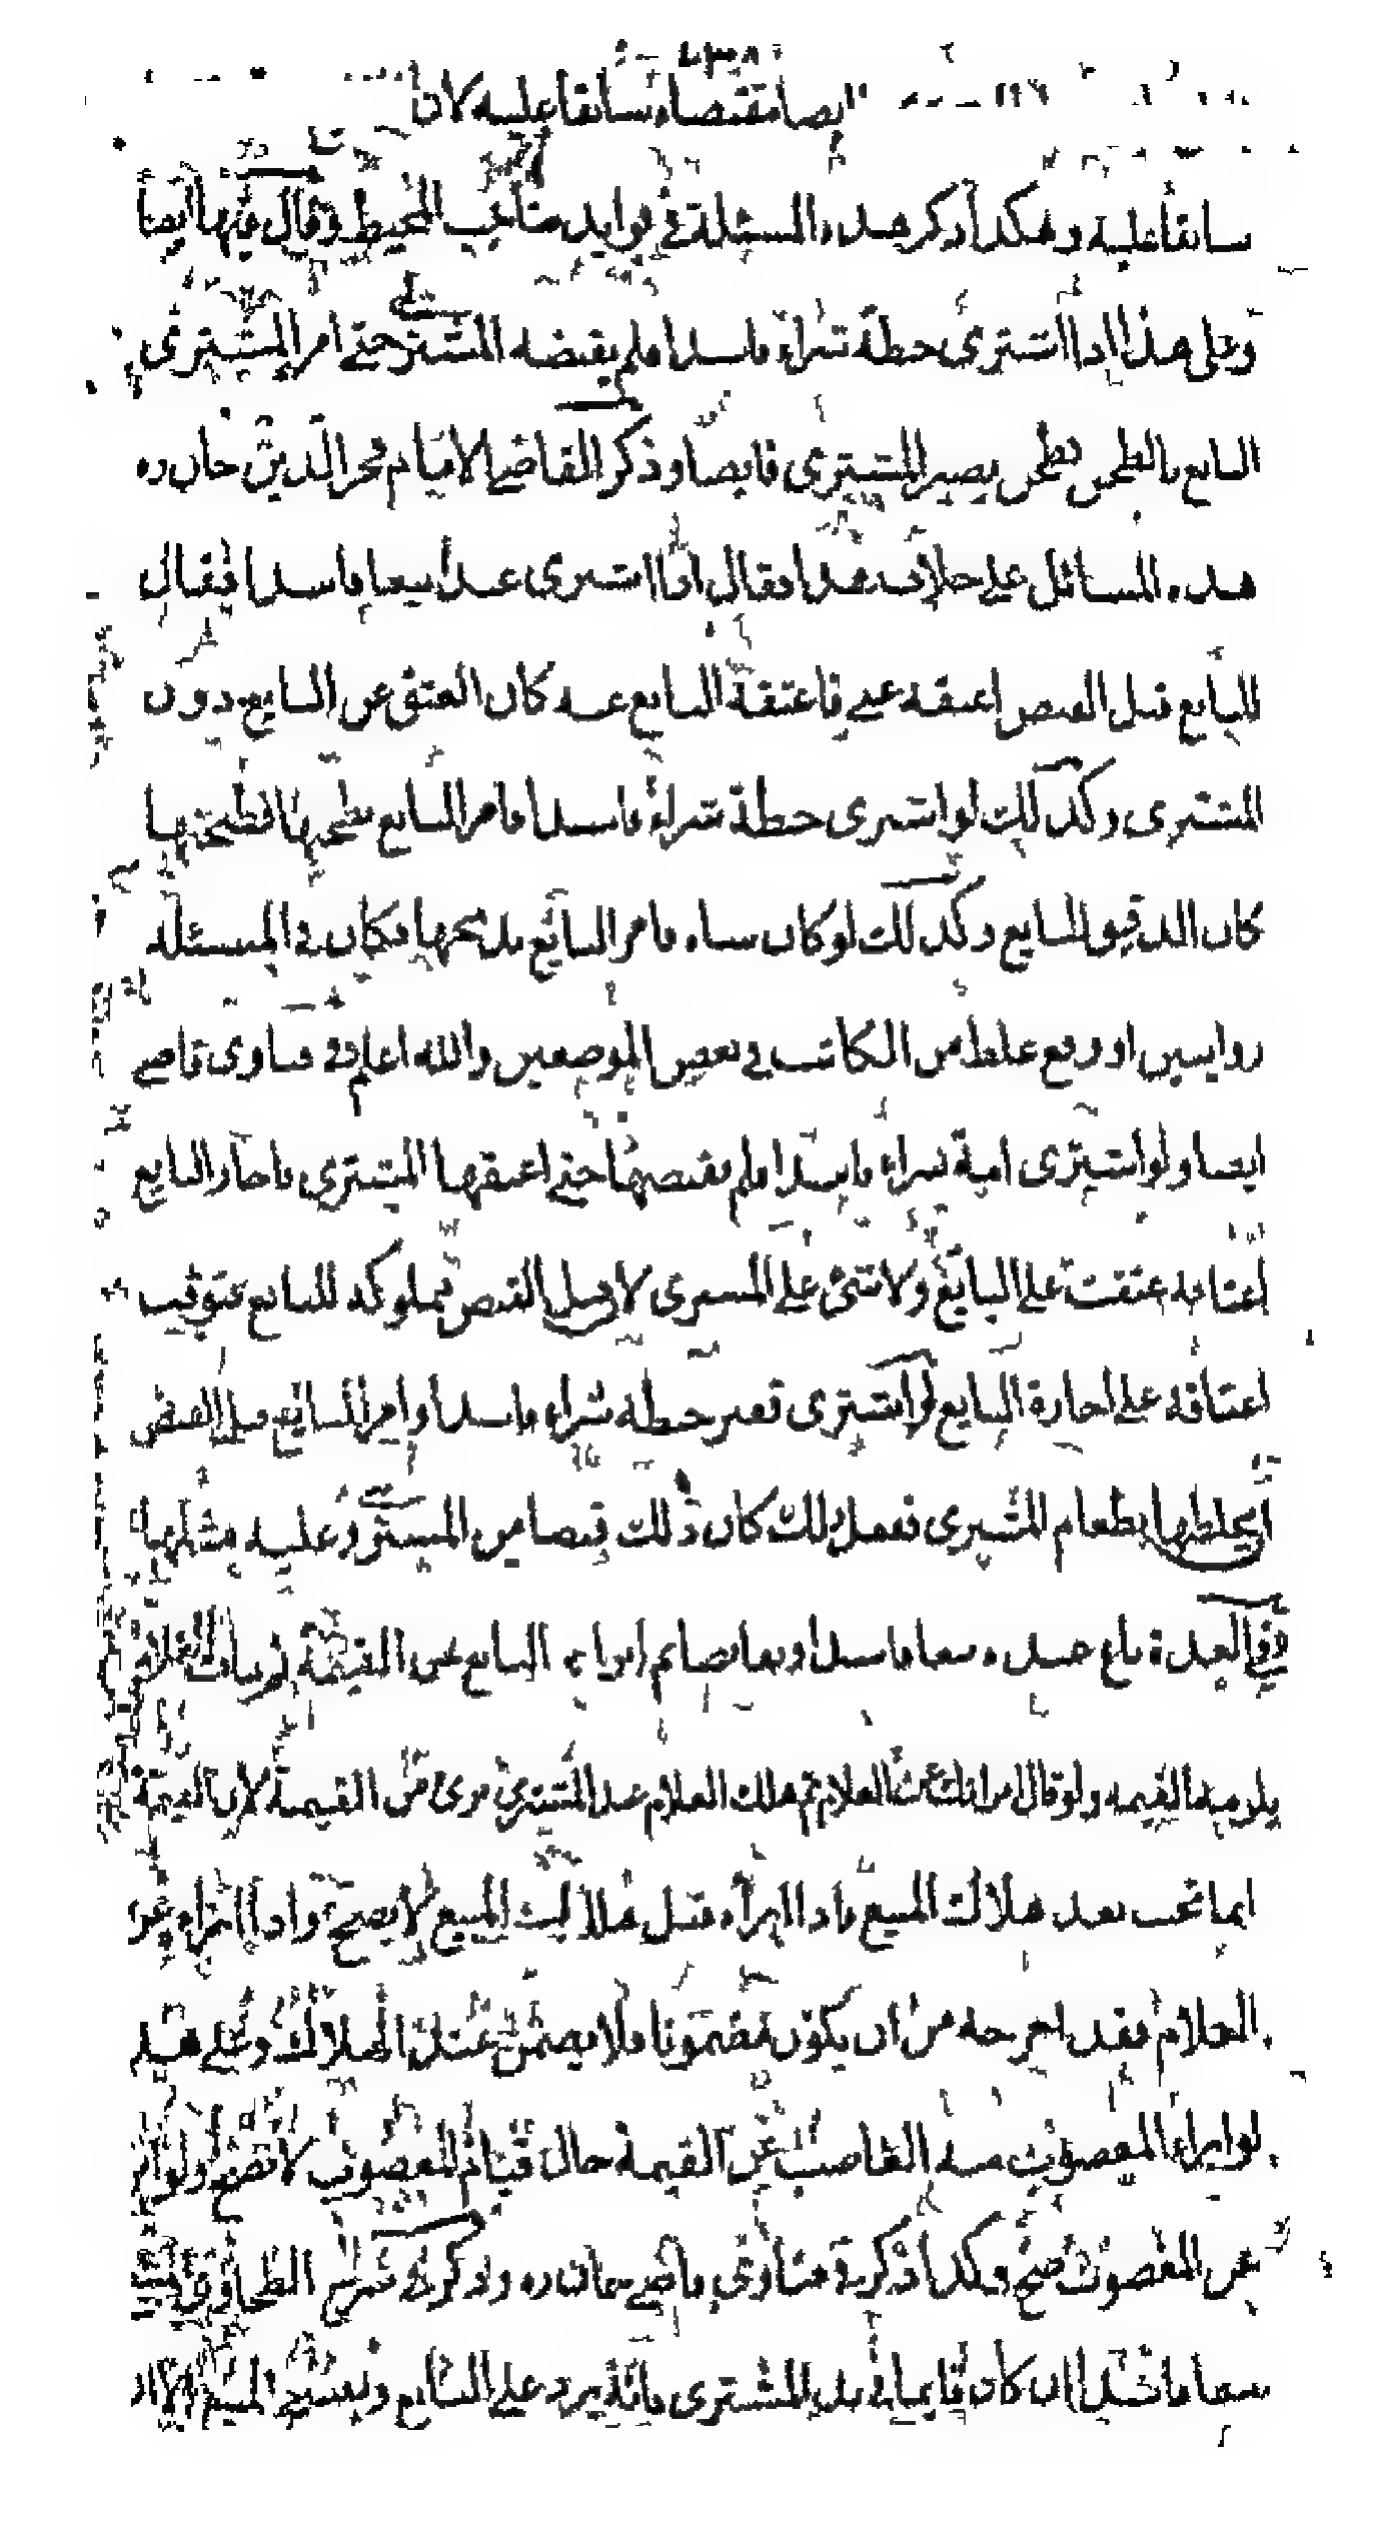 ايضا مقتضاه سابقا عليه لان
سابقا عليه وهكذا ذكر هذه المسئلة في فوايد صاحب المحيط وقال فيها ايضا
وعلى هذا اذا اشترى حنطة شراء فاسدا فلم يقبضه المشترى حتى امر المشترى
البايع بالطحن فطحن يصير المشترى قابضا وذكر القاضى الامام فخر الدين خان ره
هذه المسائل على خلاف هذا فقال اذا اشترى عبدا بيعا فاسدا فقال
للبايع قبل القبض اعتقه عنى فاعتقه البايع عنه كان العتق عن البايع دون
المشترى وكذلك لو اشترى حنطة شراء فاسدا فامر البايع بطحنها فطحنها
كان الدقيق للبايع وكذلك لو كان شاه فامر البايع بذبحها فكان في المسئلة
روايتين او وقع غلط من الكاتب في بعض الموضعين والله اعلم وفي فتاوى قاضى
ايضا ولو اشترى امة شراء فاسدا فلم يقبضها حتى اعتقها المشترى فاجاز البايع
اعتاقه عتقت على البايع ولا شئ على المشترى لان قبل القبض مملوكه للبايع فتوقف
اعتاقه على اجازة البايع لو اشترى قفيز حنطة شراء فاسدا وامر البايع قبل القبض
ان يخلطها بطعام المشترى ففعل ذلك كان ذلك قبضا من المشترى وعليه مثلها
وفي العدة باع عبده بيعا فاسدا وتقابضا ثم ابراه البايع عن القيمة ثم مات الغلام
يلزمه القيمه ولو قال ابراتك عن الغلام ثم هلك الغلام عند المشترى برئ من القيمة لان القيمة
انما تجب بعد هلاك المبيع فاذا ابرأه قبل هلاك المبيع لا يصح واذا ابراه عن
الغلام فقد اخرجه من ان يكون مضمونا فلا يضمن عند الهلاك وعلى هذا
لو ابراء المغصوب منه الغاصب عن القيمة حال قيام المغصوب لا تصح ولو ابراه
عن المغصوب صح وهكذا ذكر في فتاوى قاضى خان ره وذكر في شرح الطحاوى
بيعا فاسدا ان كان قايما في يد المشترى فانه يرد على البايع ويفسخ البيع الا ان